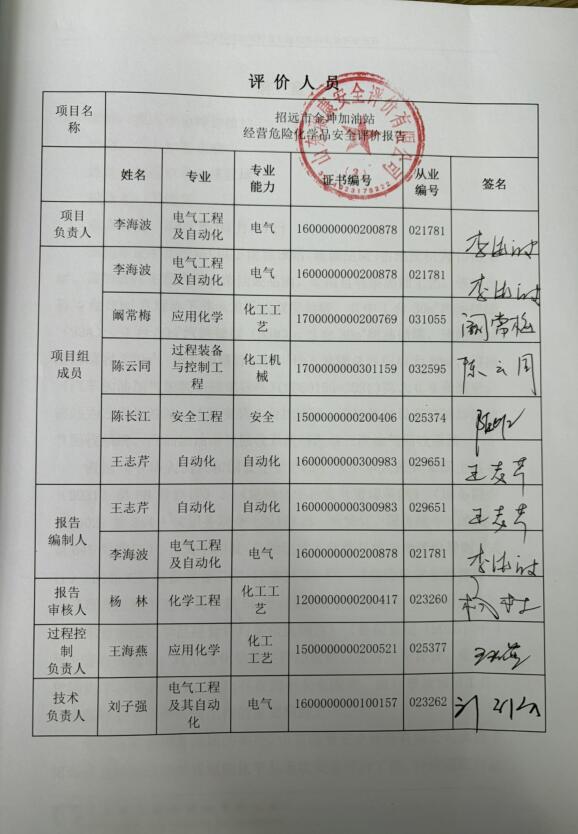 评价人员
项目名
称
招远市金坤加油站
经营危险化学品安全评价报告
姓名 专业 专业
能力 证书编号 从业
编号 签名
项目
负责人 李海波 电气工程
及自动化 电气 1600000000200878 021781 李海波
项目组
成员
李海波 电气工程
及自动化 电气 1600000000200878 021781 李海波
阚常梅 应用化学 化工工
艺 1700000000200769 031055 阚常梅
陈云同 过程装备
与控制工
程 化工机
械 1700000000301159 032595 陈云同
陈长江 安全工程 安全 1500000000200406 025374
王志芹 自动化 自动化 1600000000300983 029651 王志芹
报告
编制人
王志芹 自动化 自动化 1600000000300983 029651 王志芹
李海波 电气工程
及自动化 电气 1600000000200878 021781 李海波
报告
审核人 杨 林 化学工程 化工工
艺 1200000000200417 023260
过程控
制
负责人 王海燕 应用化学 化工
工艺 1500000000200521 025377 王海燕
技术
负责人 刘子强 电气工程
及其自动
化 电气 1600000000100157 023262